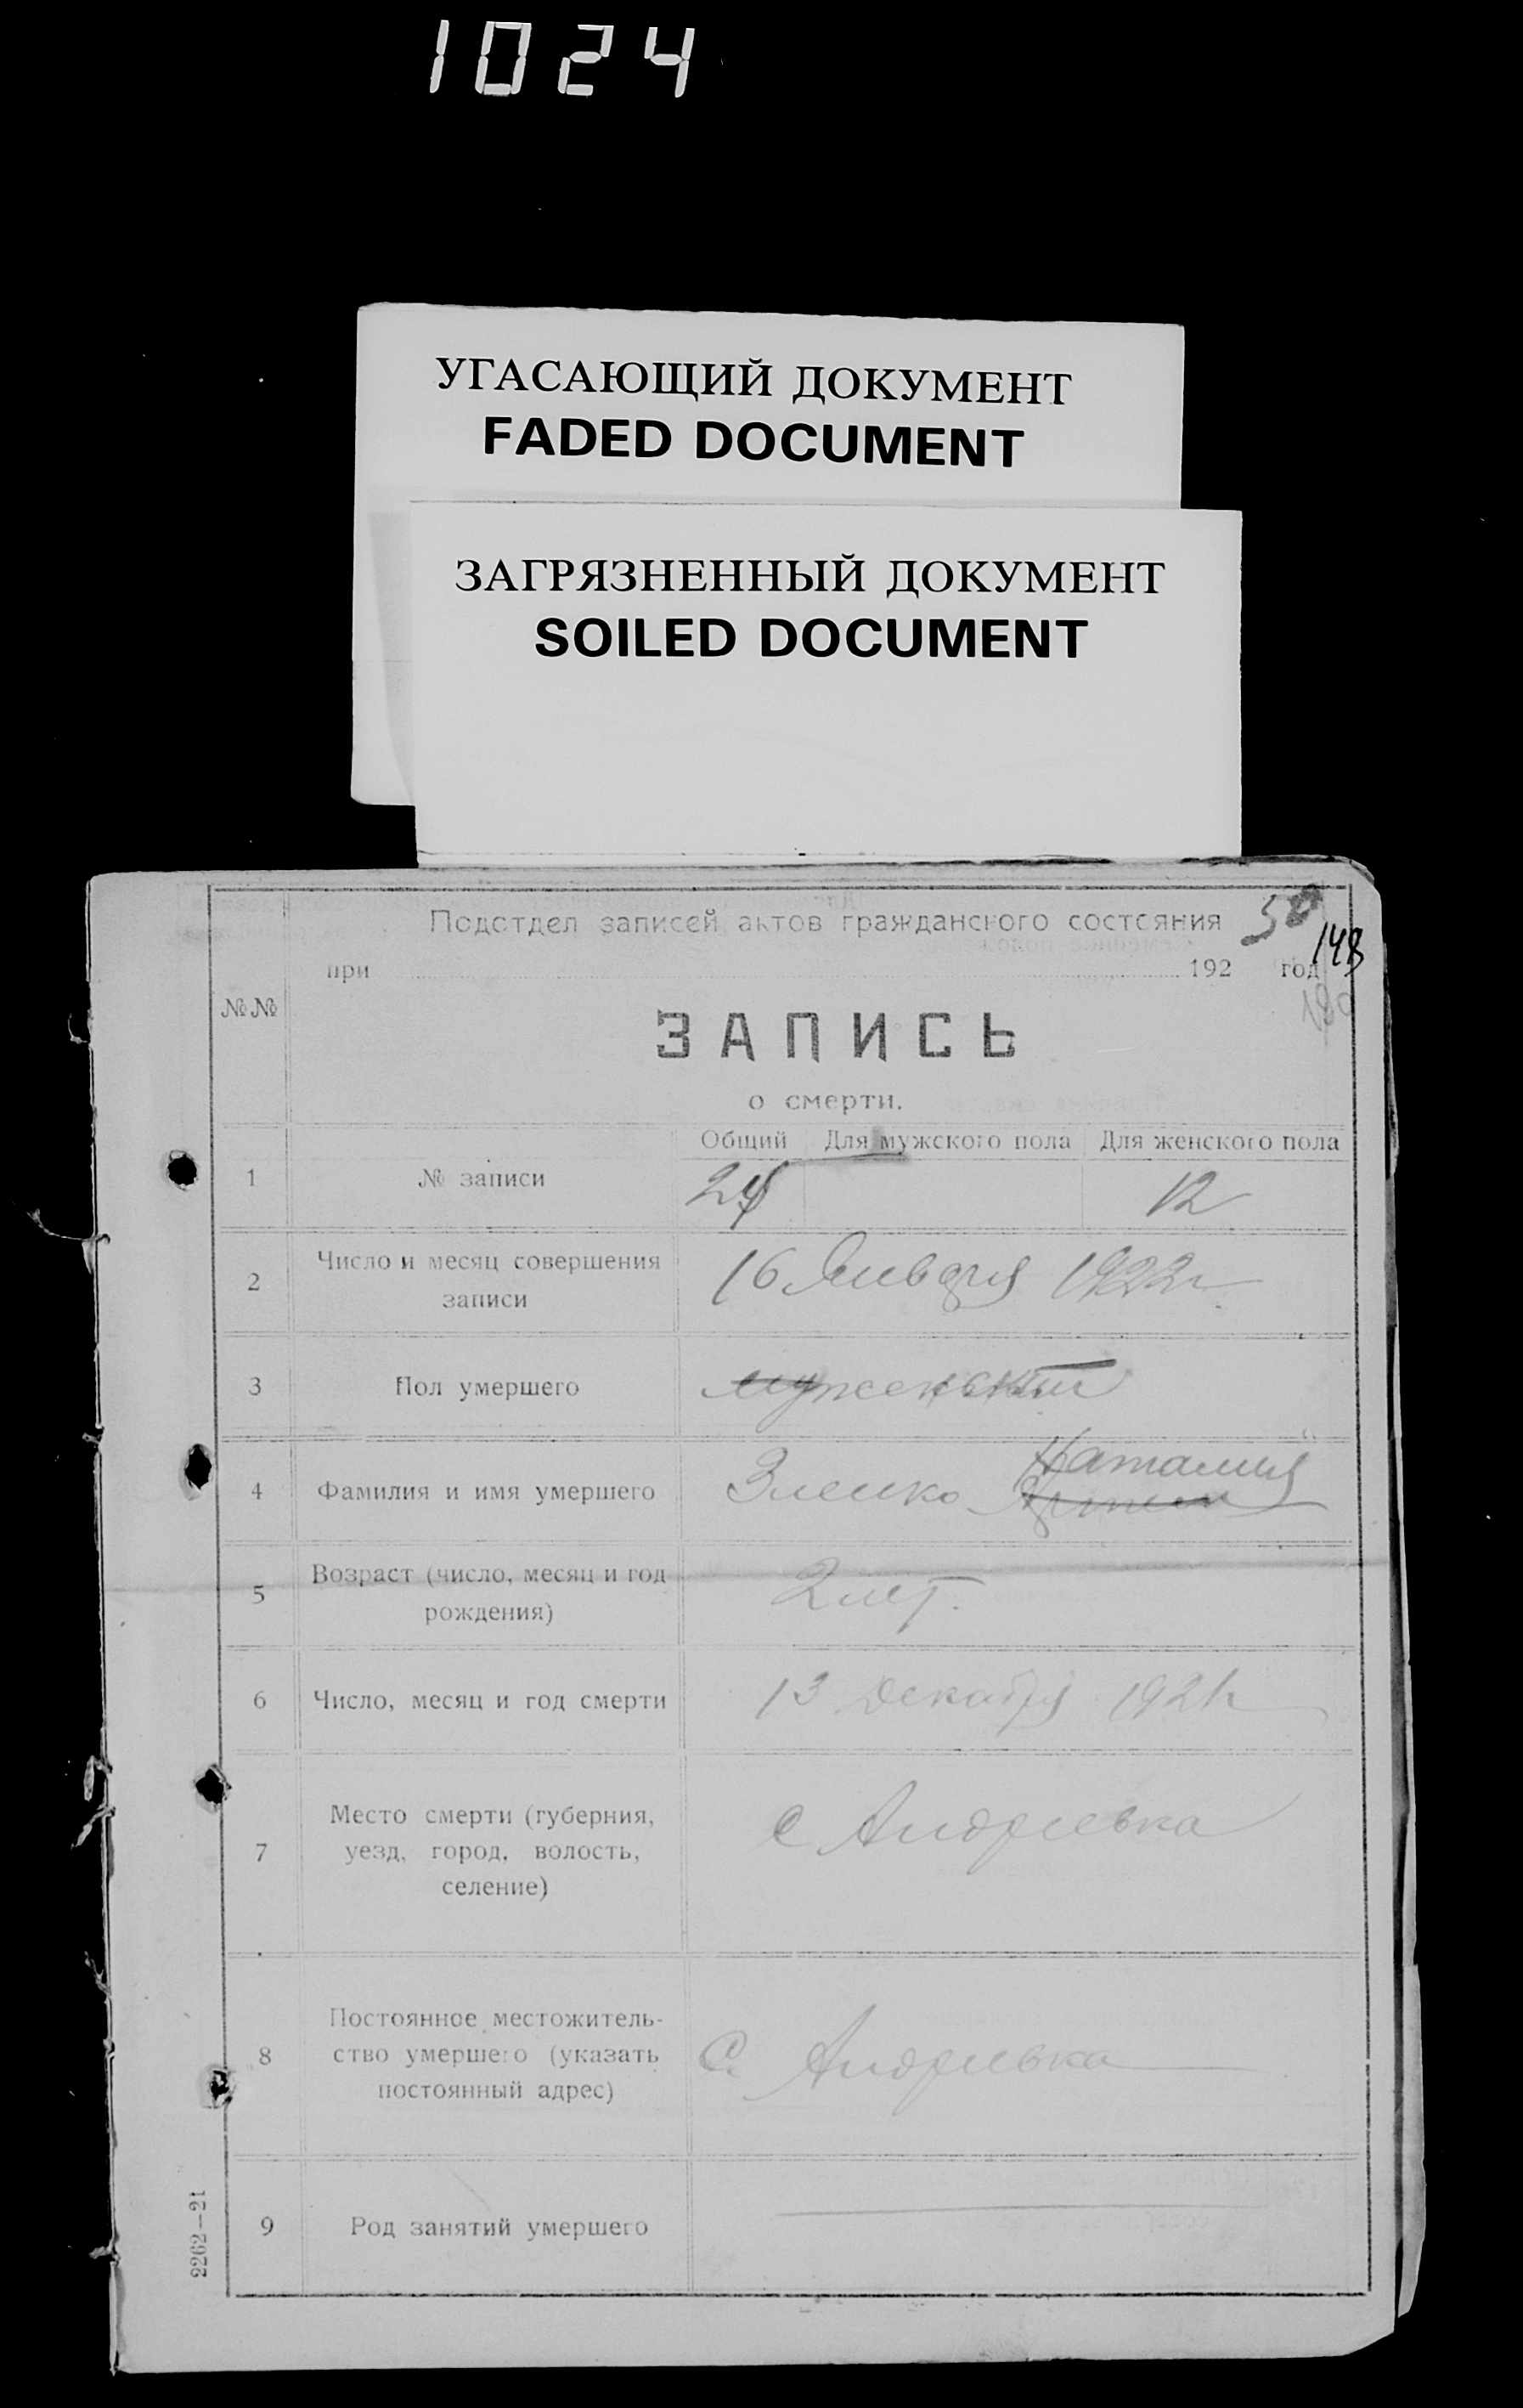 1024
УГАСАЮЩИЙ ДОКУМЕНТ
FADED DOCUMENT
ЗАГРЯЗНЕННЫЙ ДОКУМЕНТ
SOILED DOCUMENT
Подотдел записей актов гражданского состояния 50
148
при 192 год
№№
ЗАПИСЬ
о смерти.
Общий Для мужского пола Для женского пола
1 № записи 24 12
2 Число и месяц совершения
записи
16 Января 1922г
3 Пол умершего женский
Наталия
4 Фамилия и имя умершего Зленко
5 Возраст (число, месяц и год
рождения)
2 лет.
6 Число, месяц и год смерти 13 Декабря 1921г
7 Место смерти (губерния,
уезд, город, волость,
селение)
с Андреевка
8 Постоянное местожитель-
ство умершего (указать
постоянный адрес)
С. Андреевка
9 Род занятий умершего
2262—21